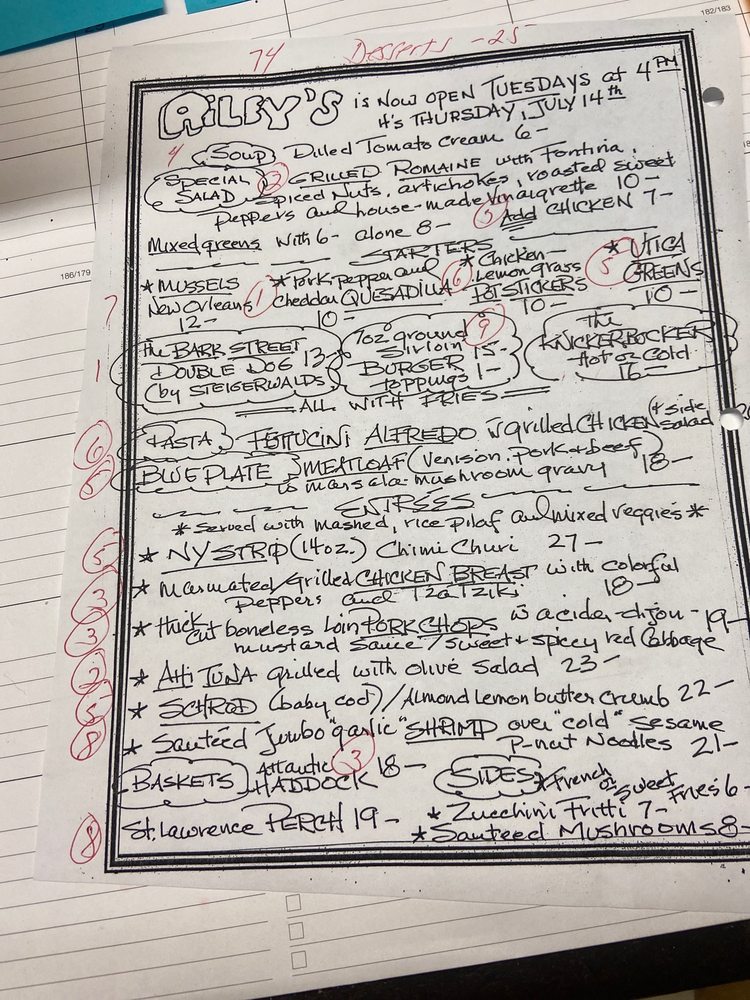 182/183
186/179
74 Desserts -25-
RILEY'S IS NOW OPEN TUESDAYS at 4 PM
It's THURSDAY, JULY 14th
4 SOUP Dilled Tomato Cream 6-
SPECIAL SALAD GRILLED ROMAINE with Fontina,
Spiced Nuts, artichokes, roasted sweet
peppers and house-made Vinaigrette 10-
Mixed greens with 6- alone 8- 3 Add CHICKEN 7-
STARTERS
7 * MUSSELS New Orleans 12-
1 * Pork, pepper and Cheddar QUESADILLA 10-
6 * Chicken Lemongrass POTSTICKERS 10-
5 * UTICA GREENS 10-
1 the BARK STREET DOUBLE DOG 13- (by STEIGERWALDS)
9 7oz ground Sirloin BURGER 15- toppings 1-
The KNICKERBOCKER Hot or Cold 16-
ALL WITH FRIES
6 PASTA FETTUCINI ALFREDO w grilled CHICKEN (+ side salad
BLUE PLATE MEATLOAF (venison, pork & beef)
w marsala-mushroom gravy 18-
ENTREES
* Served with mashed, rice pilaf and mixed veggies *
5 * NY STRIP (14oz.) Chimi Churi 27-
3 * Marinated/Grilled CHICKEN BREAST with colorful
peppers and TZATZIKI 18-
3 * thick cut boneless loin PORK CHOPS w a cider-dijon-
mustard sauce / sweet & spicey red Cabbage 19-
2 * AHI TUNA grilled with olive salad 23-
* SCHROD (baby cod) / Almond Lemon butter crumb 22-
8 * Sauteed Jumbo "garlic" SHRIMP over "cold" sesame
P-nut Noodles 21-
BASKETS Atlantic HADDOCK 3 18-
8 St. Lawrence PERCH 19-
SIDES * French or Sweet Fries 6-
* Zucchini Fritti 7-
* Sauteed Mushrooms 8-